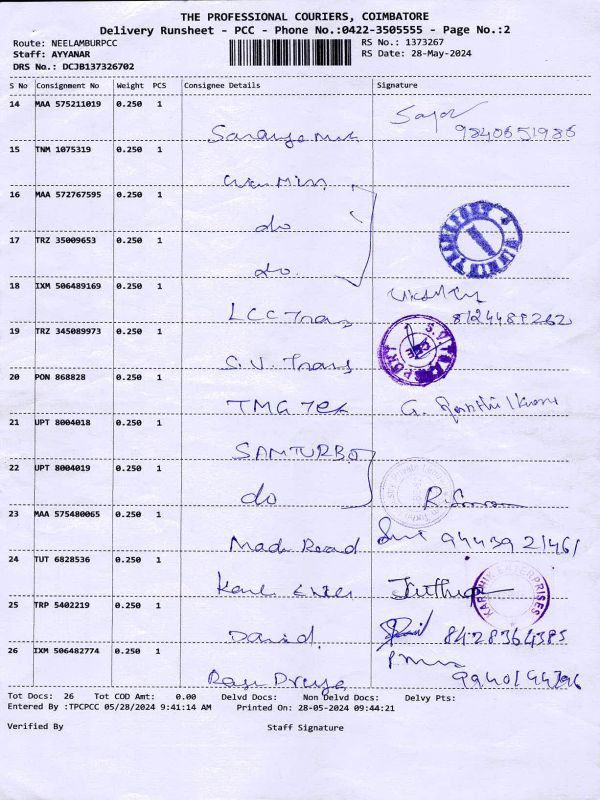 THE PROFESSIONAL COURIERS, COIMBATORE
Delivery Runsheet - PCC - Phone No.:0422-3505555 - Page No.:2
Route: NEELAMBURPCC RS No.: 1373267
Staff: AYYANAR RS Date: 28-May-2024
DRS No.: DCJB137326702
S No Consignment No Weight PCS Consignee Details Signature
14 MAA 575211019 0.250 1
9840651986
15 TNM 1075319 0.250 1
16 MAA 572767595 0.250 1
do
17 TRZ 35009653 0.250 1
do
18 IXM 506489169 0.250 1
LCC Trans 8124489262
19 TRZ 345089973 0.250 1
S.V. Trans
20 PON 868828 0.250 1
TMG
21 UPT 8004018 0.250 1
SAMTURBO
22 UPT 8004019 0.250 1
do
23 MAA 575480065 0.250 1
Road 9443921461
24 TUT 6828536 0.250 1
ENTERPRISES
25 TRP 5402219 0.250 1
David 8428364385
26 IXM 506482774 0.250 1
9940194796
Tot Docs: 26 Tot COD Amt: 0.00 Delvd Docs: Non Delvd Docs: Delvy Pts:
Entered By :TPCPCC 05/28/2024 9:41:14 AM Printed On: 28-05-2024 09:44:21
Verified By Staff Signature